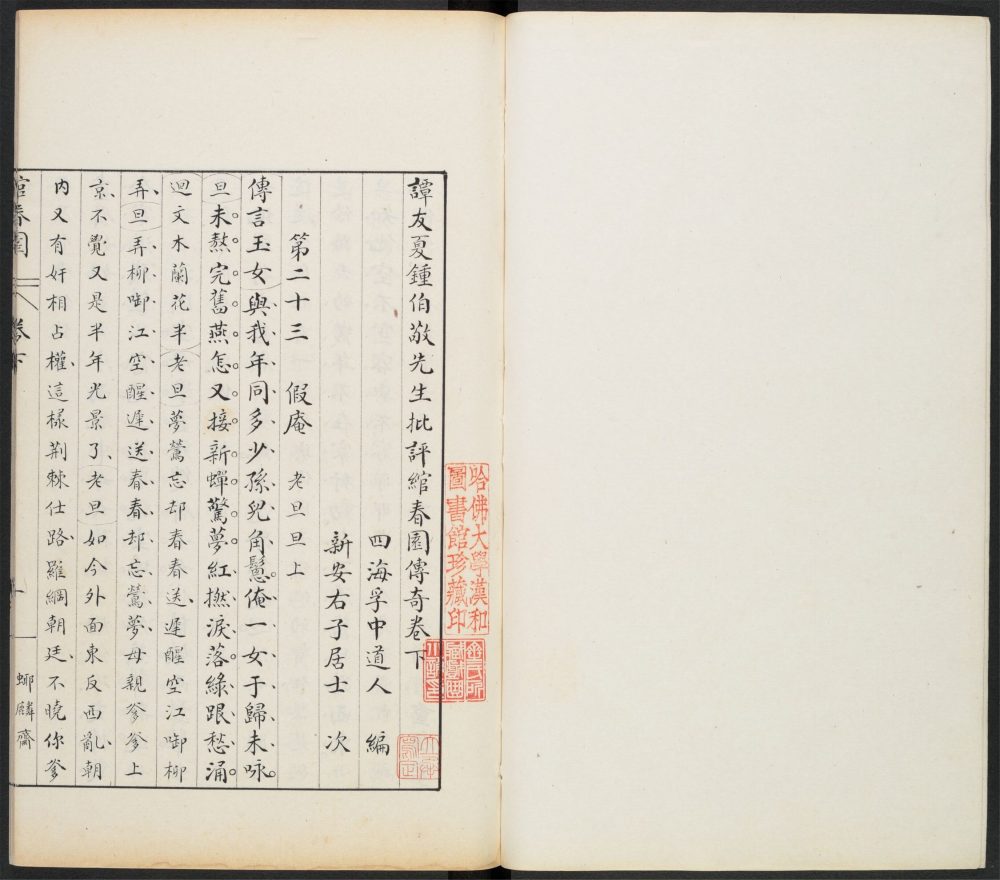 譚友夏鍾伯敬先生批評綰春園傳奇卷下
四海孚中道人 編
新安右子居士 次
第二十三 假庵 老旦旦上
傳言玉女與我年同多少孫兒角鬢俺一女于歸未咏
旦未熬完舊燕怎又接新蟬驚夢紅撚淚落綠跟愁涌
迴文木蘭花半老旦夢鶯忘却春春送遲醒空江啣柳
弄旦弄柳啣江空醒遲送春春却忘鶯夢母親爹爹上
京不覺又是半年光景了老旦如今外面東反西亂朝
內又有奸相占權這樣荆棘仕路羅網朝廷不曉你爹
綰春園 卷下
螂隣齋
哈佛大學漢和
圖書館珍藏印